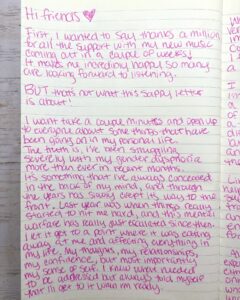 Hi friends ♡
First, I wanted to say thanks a million
for all the support with my new music
coming out in a couple of weeks!
It makes me incredibly happy so many
are looking forward to listening.
BUT that's not what this sappy letter
is about!
I want take a couple minutes and open up
to everyone about some things that have
been going on in my personal life.
The truth is, I've been struggling
severely with my gender dysphoria
more than ever in recent months.
It's something that I've always concealed
in the back of my mind, and through
the years has slowly crept its way to the
front. Last year was when things really
started to hit me hard, and this mental
warfare has really just escalated since then.
I let it get to a point where it was eating
away at me and affecting everything in
my life. My margins, my relationships,
my confidence, but most importantly
my sense of self. I knew what needed
to be addressed but always told myself
that I'll get to it when I'm ready.